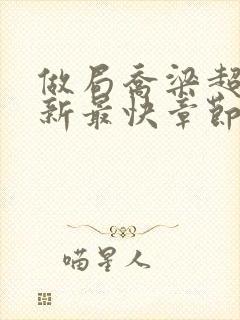 做局乔梁超
新最快章节
喵星人